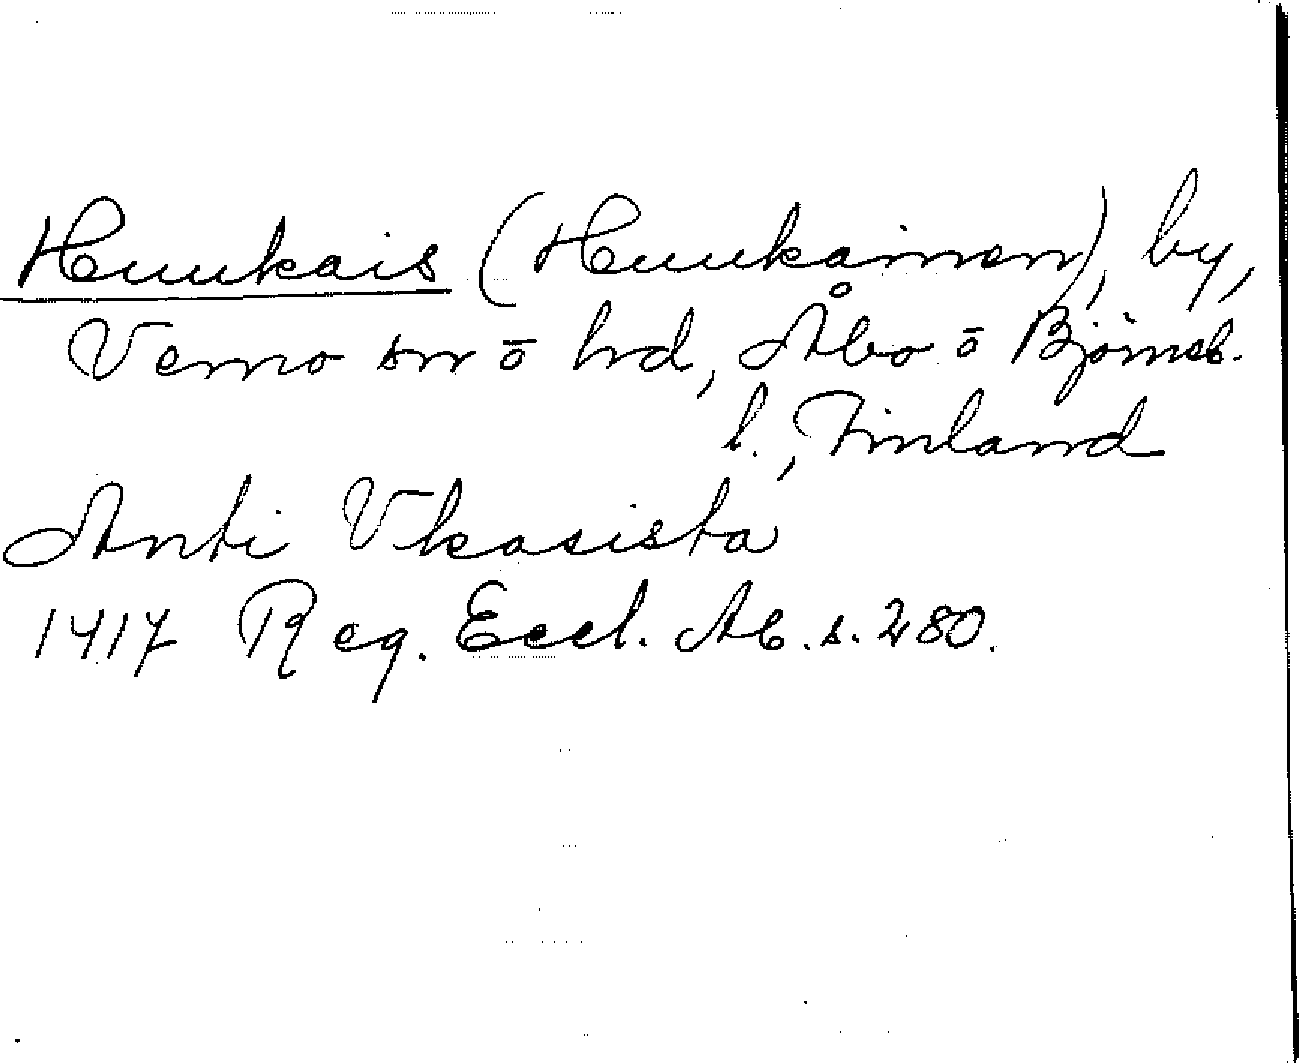 Huukais (Huukainen), by,
Vemo sn ō hd, Åbo ō Björneb.
l., Finland
Anti Vkasista
1417 Reg. Eccl. Ab. s. 280.